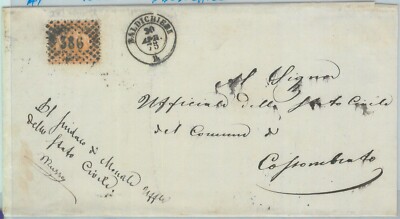 386
BALDICHIERI
20
APR.
75
Al Signor
Ufficiale dello Stato Civile
del Comune di
Cossombrato
Il Sindaco di Monale Uffle
dello Stato Civile